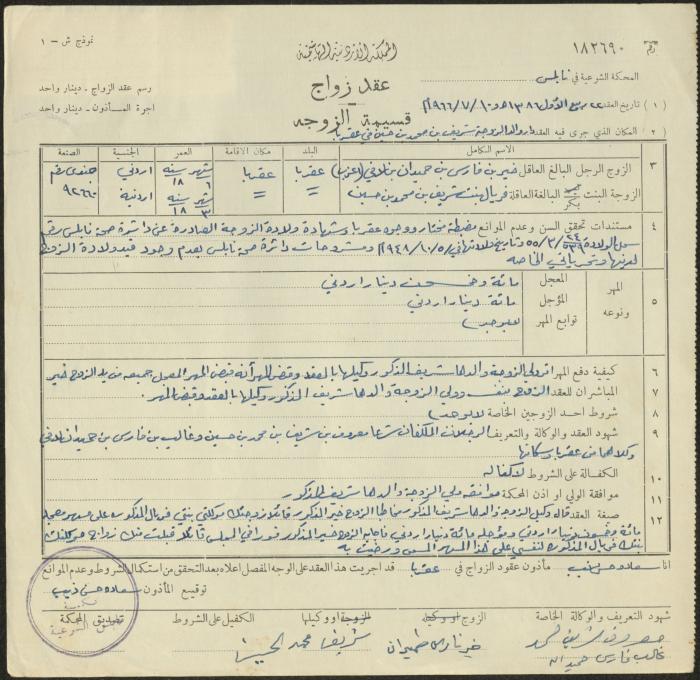 نموذج ش - ١
المملكة الأردنية الهاشمية
رقم ١٨٢٦٩٠
المحكمة الشرعية في نابلس
رسم عقد الزواج - دينار واحد
اجرة المأذون - دينار واحد
عقد زواج
قسيمة الزوجه
(١) تاريخ العقد ٢٢ ربيع الاول ١٣٨٦ و ١٠/٧/١٩٦٦
(٢) المكان الذي جرى فيه العقد دار والد الزوجة شريف بن محمد بن حسين في عقربا
الاسم الكامل البلد مكان الاقامة العمر الجنسية الصنعة
٣ الزوج الرجل البالغ العاقل خير بن فارس بن حميدان (اعزب) عقربا عقربا شهر سنة ١ ١٨ اردني جندي رقم ٩٢٦٦٠
الزوجة البنت بكر البالغة العاقلة فريال بنت شريف بن محمد بن حسين = = شهر سنة ٣ ١٨ اردنية
٤ مستندات تحقق السن وعدم الموانع مضبطة مختار ووجوه عقربا وشهادة ولادة الزوجة الصادرة عن دائرة صحة نابلس رقم
سجل الولادة وتاريخ ولادتها في ٥/١٠/١٩٤٨ ومشروحات دائرة صحة نابلس بعدم وجود قيد ولادة الزوج
لديها وتحرياتي الخاصه
٥ المهر ونوعه
المعجل مائة وخمسون دينار اردني
المؤجل مائة دينار اردني
توابع المهر لا يوجد
٦ كيفية دفع المهر اقر ولي الزوجة والدها شريف المذكور وكيلها بالعقد وقبض المهر أنه قبض المهر المعجل جميعه من يد الزوج خير
٧ المباشران للعقد الزوج بنفسه وولي الزوجة والدها شريف المذكور وكيلها بالعقد وقبض المهر.
٨ شروط احد الزوجين الخاصة لا يوجد
٩ شهود العقد والوكالة والتعريف الرجلان المكلفان شرعا معروف بن شريف بن محمد بن حسين وغالب بن فارس بن حميدان
وكلاهما من عقربا وسكانها
١٠ الكفالة على الشروط لا كفاله
١١ موافقة الولي او اذن المحكمة موافقة ولي الزوجة والدها شريف المذكور
١٢ صفة العقد قال وكيل الزوجة والدها شريف المذكور مخاطبا الزوج خير المذكور قائلا زوجتك موكلتي بنتي فريال المذكوره على مهر معجله
مائة وخمسون دينار اردني ومؤجله مائة دينار اردني فأجابه الزوج خير المذكور فورا في المجلس قائلا قبلت منك زواج موكلتك
بنتك فريال المذكورة لنفسي على هذا المهر المسمى ورضيت به
انا مأذون عقود الزواج في عقربا قد اجريت هذا العقد على الوجه المفصل اعلاه بعد التحقق من استكمال الشروط وعدم الموانع
توقيع المأذون
شهود التعريف والوكالة الخاصة الزوج او وكيله الزوجة او وكيلها الكفيل على الشروط تصديق المحكمة
معروف شريف محمد
غالب فارس حميدان
خير فارس حميدان
شريف محمد الحسين